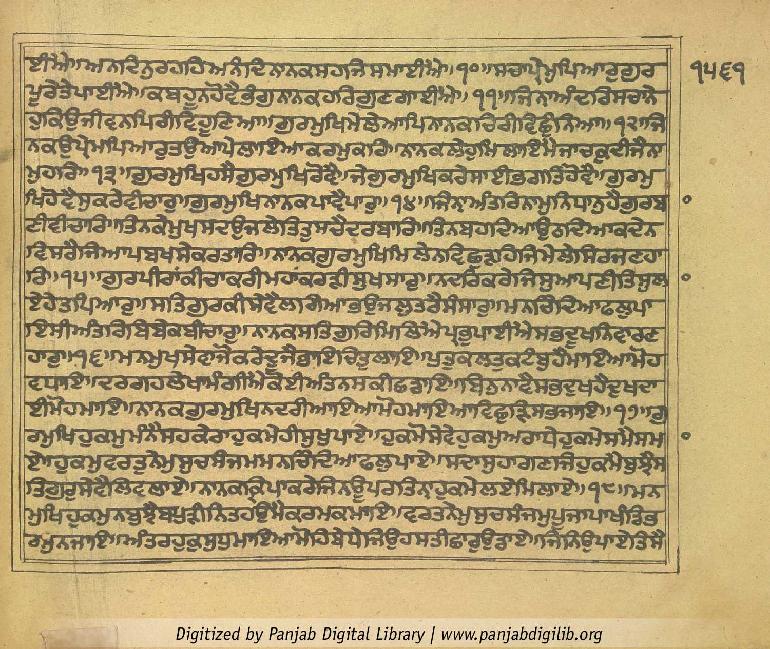 ਈਐ॥ਅਨਦਿਨੁਰਹਹਿਅਨੰਦਿਨਾਨਕਸਹਜਿਸਮਾਈਐ॥੧੦॥ਸਚਾਪ੍ਰੇਮੁਪਿਆਰੁਗੁਰ
੧੫੬੧
ਪੂਰੇਤੇਪਾਈਐ॥ਕਬਹੂਨਹੋਵੈਭੰਗੁਨਾਨਕਹਰਿਗੁਣਗਾਈਐ॥੧੧॥ਜਿਨਾਅੰਦਰਿਸਚਨੇ
ਹੁਕਿਉਜੀਵਨਪਿਰੀਵਿਹੂਣਿਆ॥ਗੁਰਮੁਖਿਮੇਲੇਆਪਿਨਾਨਕਚਿਰੀਵਿਛੁੰਨਿਆ॥੧੨॥ਜਿ
ਨਕਉਪ੍ਰੇਮਪਿਆਰੁਤਉਆਪੇਲਾਇਆਕਰਮੁਕਰਿ॥ਨਾਨਕਲੇਹੁਮਿਲਾਇਮੈਜਾਚਕਦੀਜੈਨਾ
ਮੁਹਰਿ॥੧੩॥ਗੁਰਮੁਖਿਹਸੈਗੁਰਮੁਖਿਰੋਵੈ॥ਜਿਗੁਰਮੁਖਿਕਰੇਸਾਈਭਗਤਿਹੋਵੈ॥ਗੁਰਮੁ
ਖਿਹੋਵੈਸੁਕਰੇਵੀਚਾਰੁ॥ਗੁਰਮੁਖਿਨਾਨਕਪਾਵੈਪਾਰੁ॥੧੪॥ਜਿਨਾਅੰਤਰਿਨਾਮੁਨਿਧਾਨੁਹੈਗੁਰਬ
ਾਣੀਵੀਚਾਰਿ॥ਤਿਨਕੇਮੁਖਸਦਉਜਲੇਤਿਤੁਸਚੈਦਰਬਾਰਿ॥ਤਿਨਬਹਦਿਆਉਠਦਿਆਕਦੇਨ
ਵਿਸਰੈਜਿਆਪਬਖਸੇਕਰਤਾਰਿ॥ਨਾਨਕਗੁਰਮੁਖਿਮਿਲੇਨਵਿਛੁੜਹਿਜਿਮੇਲੇਸਿਰਜਣਹਾ
ਰਿ॥੧੫॥ਗੁਰਪੀਰਾਂਕੀਚਾਕਰੀਮਹਾਂਕਰੜੀਸੁਖਸਾਰੁ॥ਨਦਰਿਕਰੇਜਿਸੁਆਪਣੀਤਿਸੁਲਾ
ਏਹੇਤਪਿਆਰੁ॥ਸਤਿਗੁਰਕੀਸੇਵੈਲਗਿਆਭਉਜਲੁਤਰੈਸੰਸਾਰੁ॥ਮਨਚਿੰਦਿਆਫਲੁਪਾ
ਇਸੀਅੰਤਰਿਬਿਬੇਕਬੀਚਾਰੁ॥ਨਾਨਕਸਤਿਗੁਰਿਮਿਲਿਐਪ੍ਰਭੁਪਾਈਐਸਭੁਦੂਖਨਿਵਾਰਣ
ਹਾਰੁ॥੧੬॥ਮਨਮੁਖਸੇਵਾਜੋਕਰੇਦੂਜੈਭਾਇਚਿਤੁਲਾਇ॥ਪੁਤੁਕਲਤੁਕੁਟੰਬੁਹੈਮਾਇਆਮੋਹੁ
ਵਧਾਇ॥ਦਰਗਹਲੇਖਾਮੰਗੀਐਕੋਈਅੰਤਿਨਸਕੀਛਡਾਇ॥ਬਿਨੁਨਾਵੈਸਭੁਦੁਖਹੈਦੁਖਦਾ
ਈਮੋਹਮਾਇ॥ਨਾਨਕਗੁਰਮੁਖਿਨਦਰੀਆਇਆਮੋਹਮਾਇਆਵਿਛੁੜਿਸਭਜਾਇ॥੧੭॥ਗੁ
ਰਮੁਖਿਹੁਕਮੁਮੰਨੇਸਹਕੇਰਾਹੁਕਮੇਹੀਸੁਖੁਪਾਏ॥ਹੁਕਮੋਸੇਵੇਹੁਕਮੁਅਰਾਧੇਹੁਕਮੇਸਮੈਸਮ
ਾਏ॥ਹੁਕਮੁਵਰਤੁਨੇਮੁਸੁਚਸੰਜਮਮਨਚਿੰਦਿਆਫਲੁਪਾਏ॥ਸਦਾਸੁਹਾਗਣਜਿਹੁਕਮੈਬੁਝੈਸ
ਤਿਗੁਰੁਸੇਵੈਲਿਵਲਾਏ॥ਨਾਨਕਕ੍ਰਿਪਾਕਰੇਜਿਨਊਪਰਤਿਨਾਹੁਕਮੇਲਏਮਿਲਾਏ॥੧੮॥ਮਨ
ਮੁਖਿਹੁਕਮੁਨਬੁਝੇਬਪੁੜੀਨਿਤਹਉਮੈਕਰਮਕਮਾਇ॥ਵਰਤਨੇਮੁਸੁਚਸੰਜਮੁਪੂਜਾਪਾਖੰਡਿਭ
ਰਮੁਨਜਾਇ॥ਅੰਤਰਹੁਕੁਸੁਧੁਮਾਇਆਮੋਹਿਬੇਧੇਜਿਉਹਸਤੀਛਾਰੁਉਡਾਏ॥ਜਿਨਿਉਪਾਏਤਿਸੈ
Digitized by Panjab Digital Library | www.panjabdigilib.org